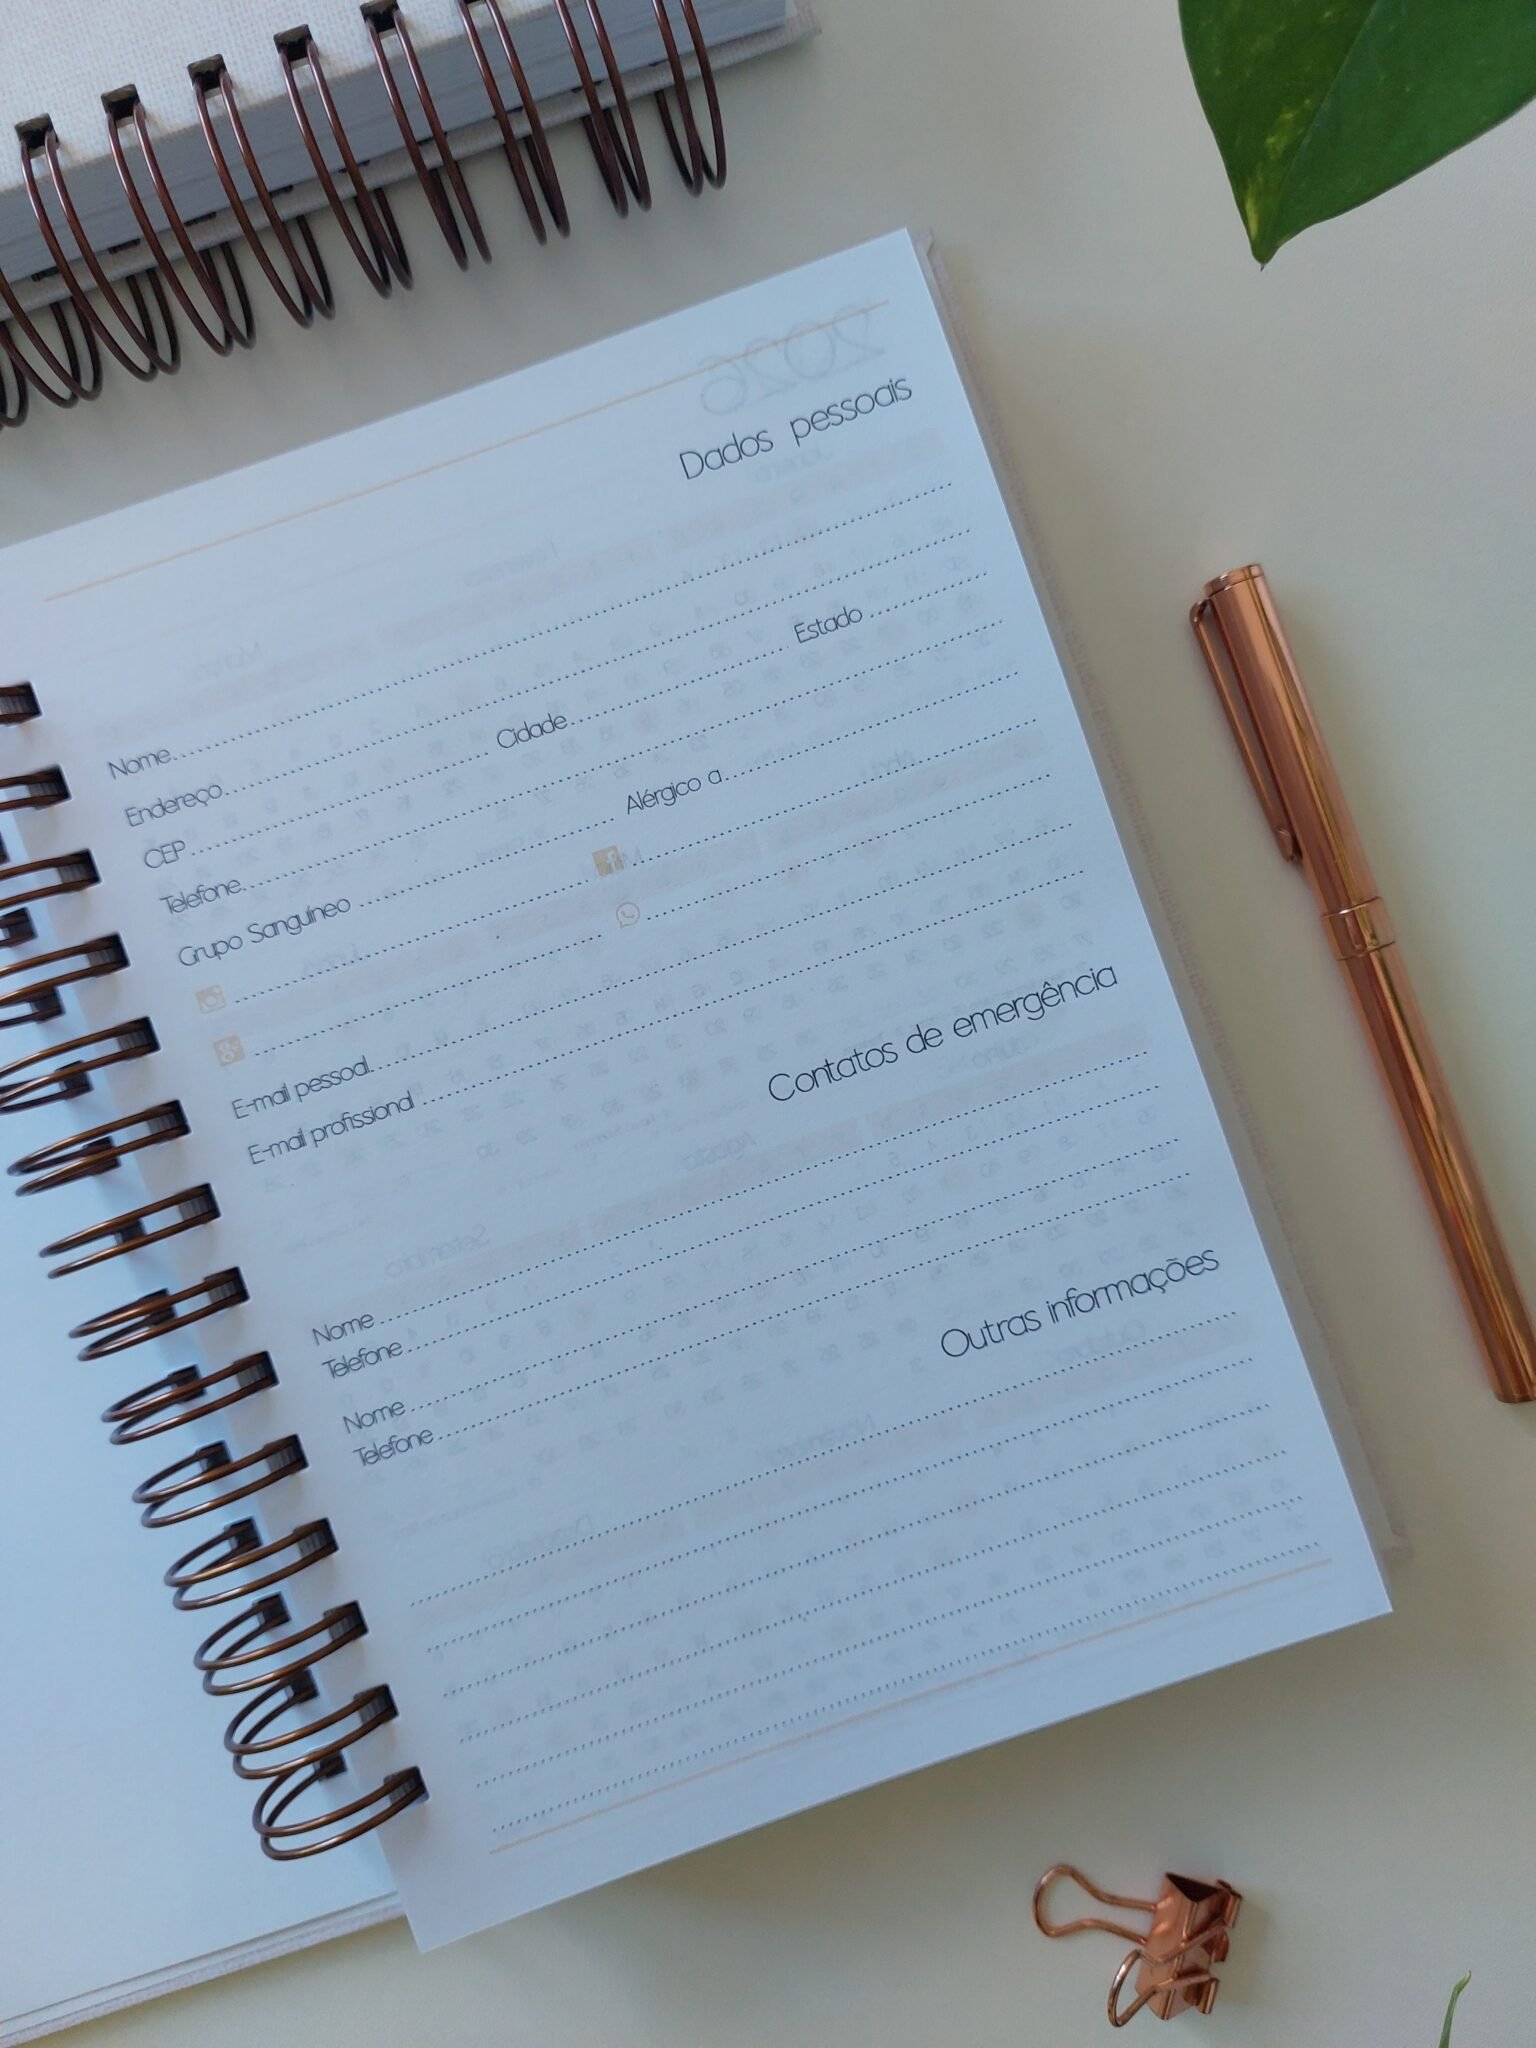 Dados pessoais
Nome
Endereço
CEP Cidade Estado
Telefone
Grupo Sanguíneo Alérgico a
E-mail pessoal
E-mail profissional
Contatos de emergência
Nome
Telefone
Nome
Telefone
Outras informações